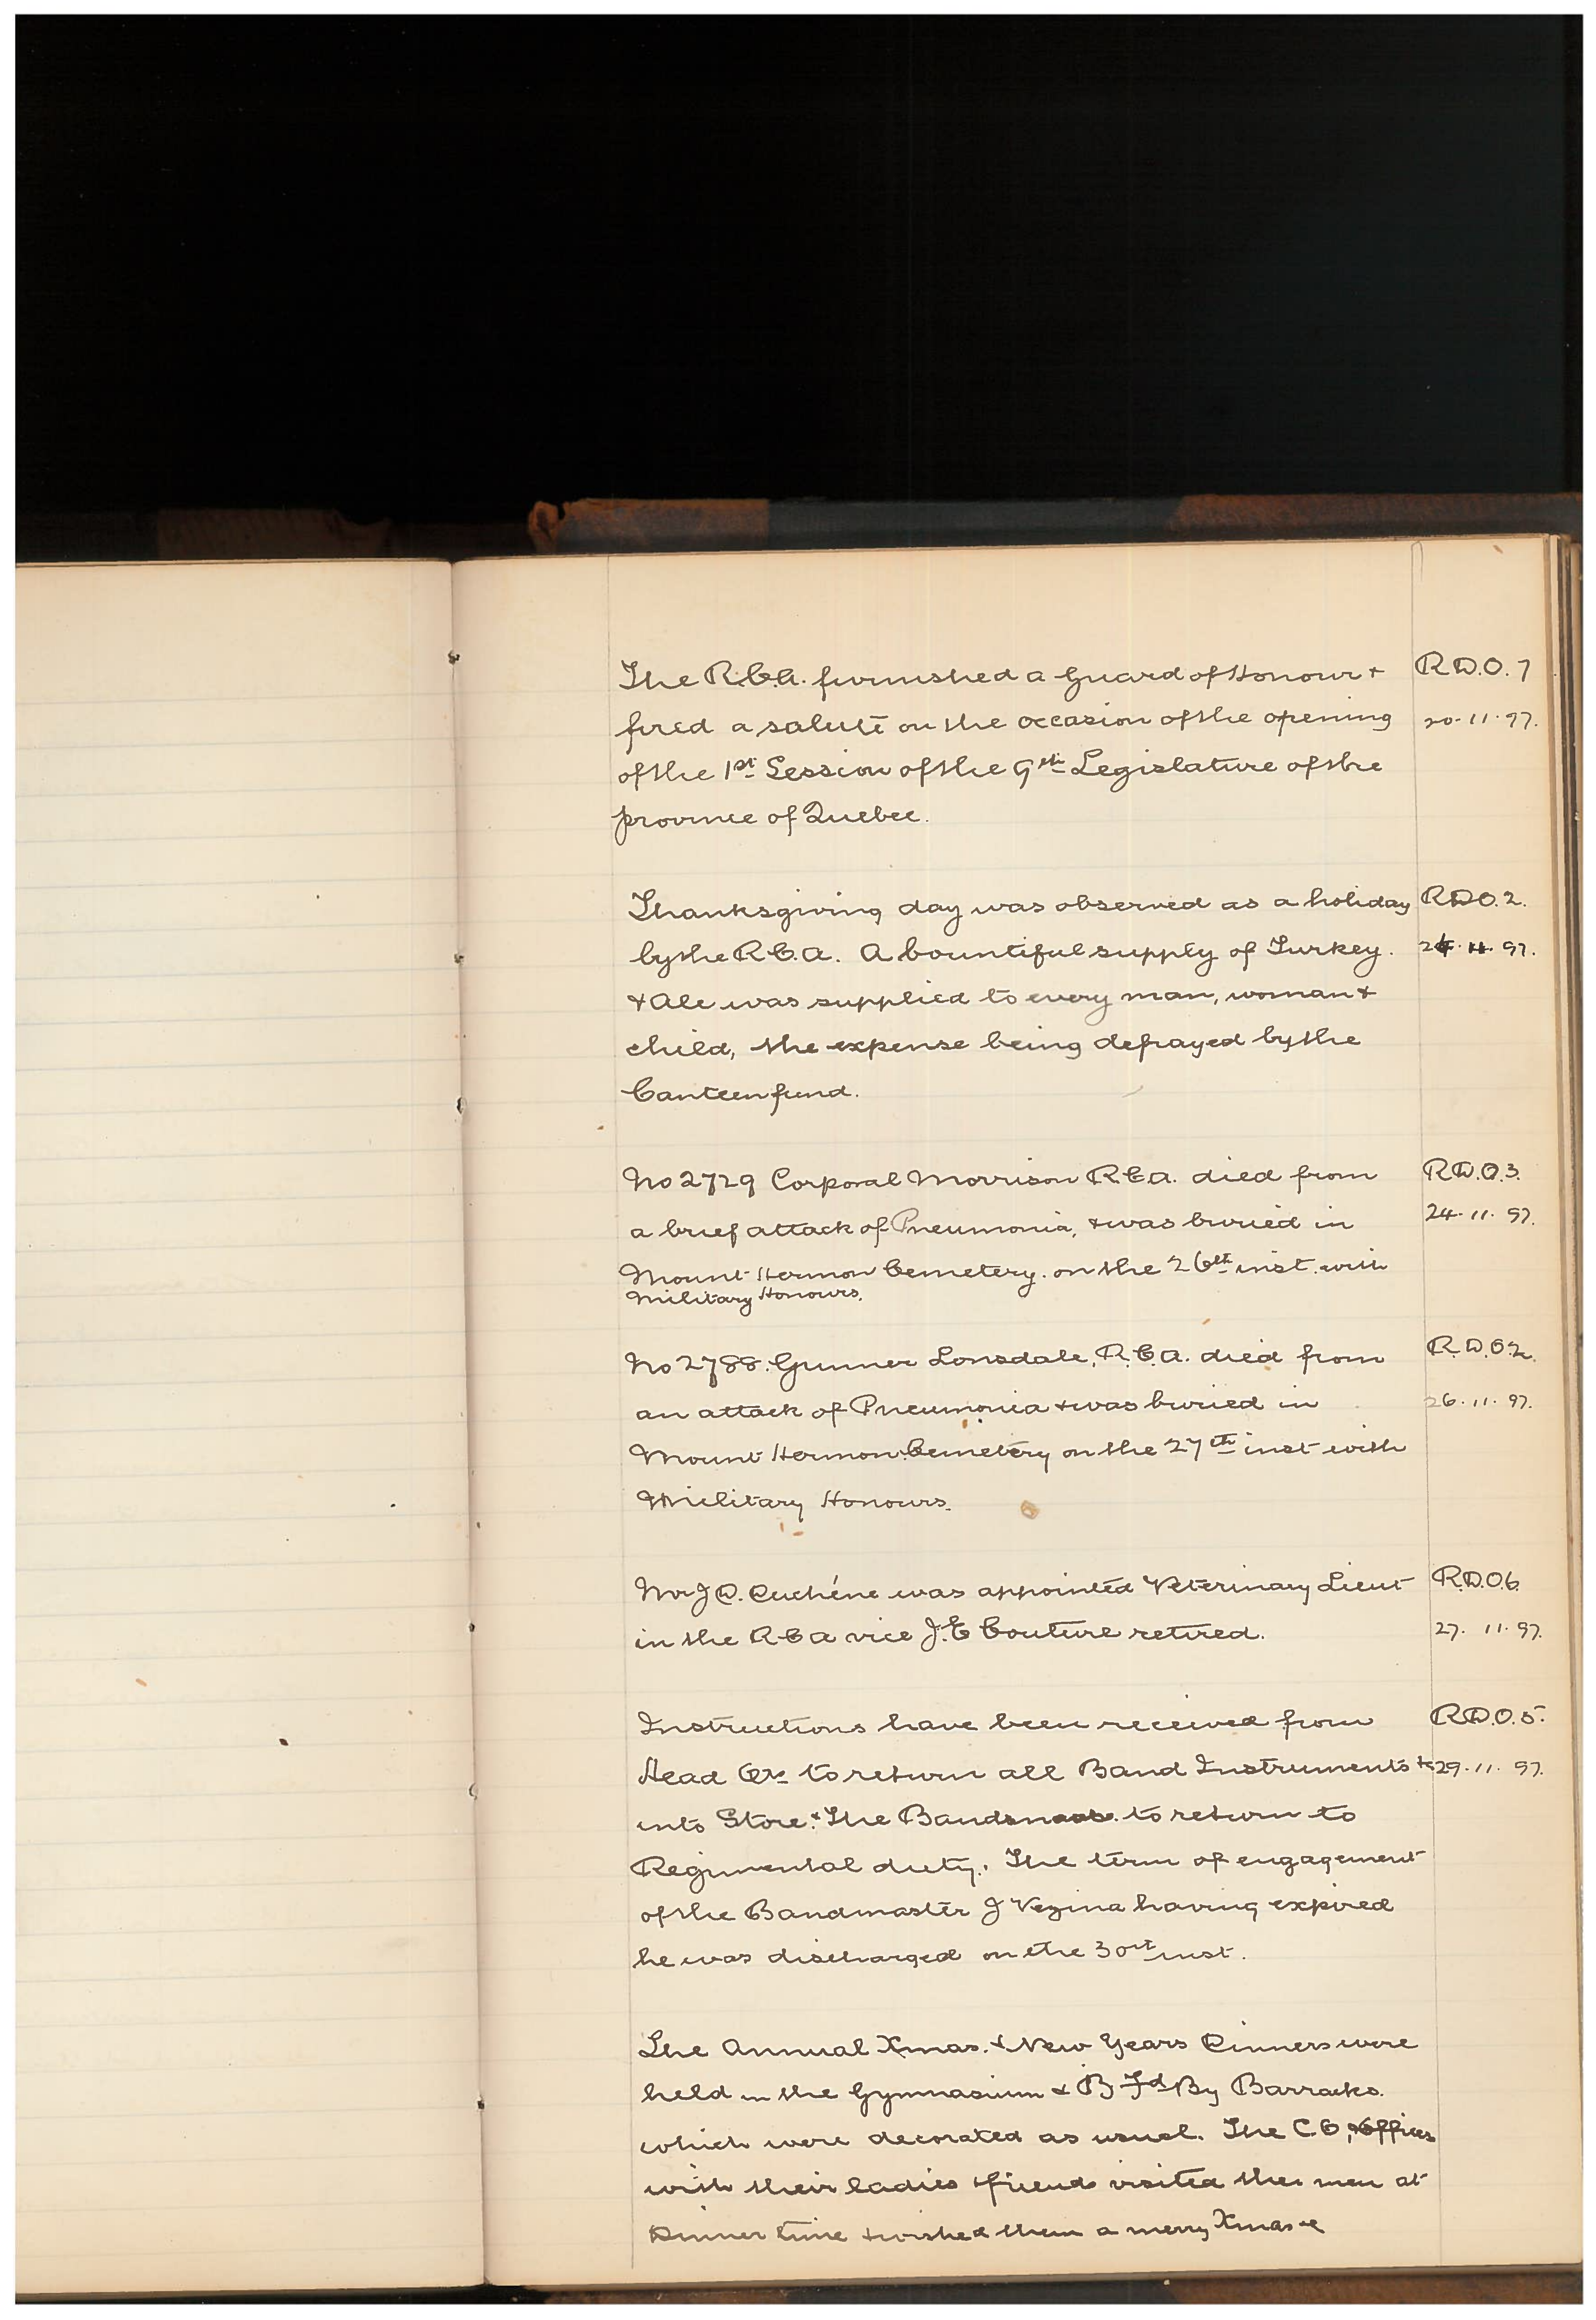 The R.C.A. furnished a Guard of Honour + R.D.O. 7
fired a salute on the occasion of the opening 20.11.97.
of the 1st Session of the 9th Legislature of the
province of Quebec.
Thanksgiving day was observed as a holiday R.D.O. 2.
by the R.C.A. A bountiful supply of Turkey. 24.11.97.
+ Ale was supplied to every man, woman +
child, the expense being defrayed by the
Canteen fund.
No 2729 Corporal Morrison R.C.A. died from R.D.O. 3.
a brief attack of Pneumonia, + was buried in 24.11.97.
Mount Hermon Cemetery. on the 26th inst. with
Military Honours.
No 2788. Gunner Lonsdale, R.C.A. died from R.D.O. 2.
an attack of Pneumonia + was buried in 26.11.97.
Mount Hermon Cemetery on the 27th inst with
Military Honours.
Mr J D. Duchéne was appointed Veterinary Lieut R.D.O. 6.
in the R C A vice J. E Couture retired. 27.11.97.
Instructions have been received from R.D.O. 5.
Head Qrs to return all Band Instruments 29.11.97.
into Store. + The Bandsmen to return to
Regimental duty. The term of engagement
of the Bandmaster J Vezina having expired
he was discharged on the 30th inst.
The Annual Xmas. + New Years Dinners were
held in the Gymnasium + B Fd By Barracks.
which were decorated as usual. The C O, + Officers
with their ladies + friends visited the men at
Dinner time + wished them a merry Xmas +